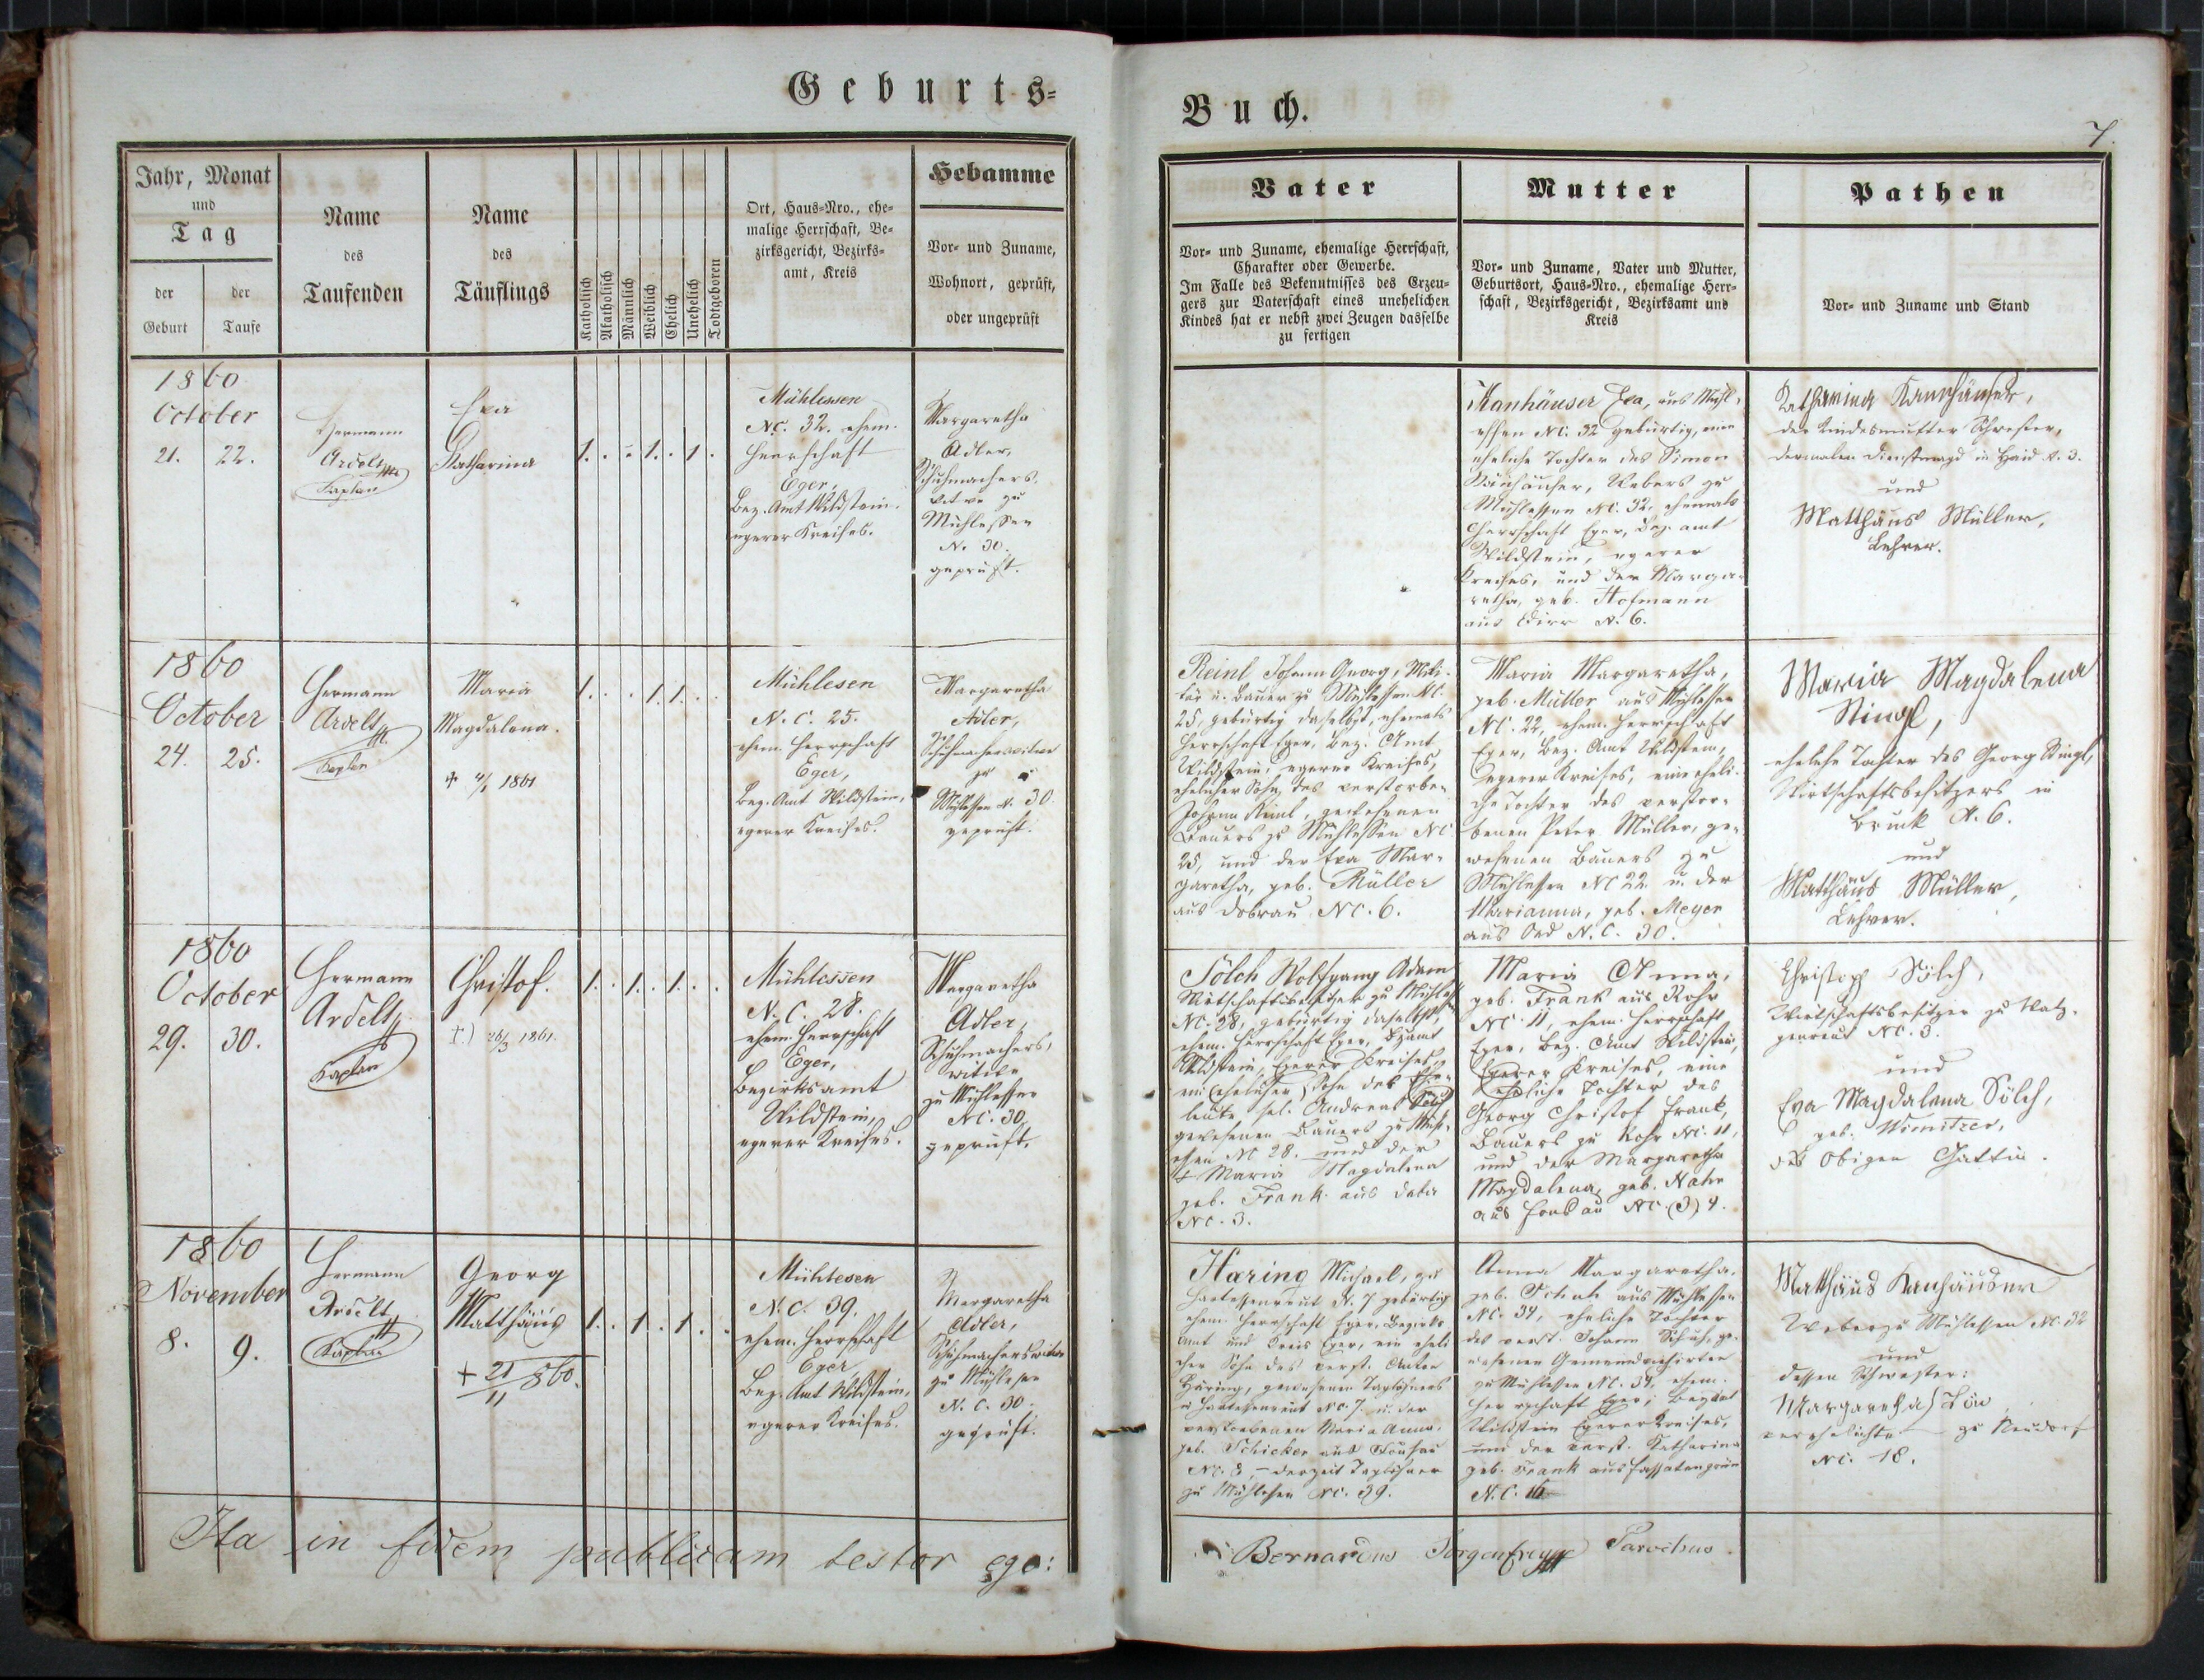 Geburts=
Buch.
7.
Jahr, Monat
und
Tag
der
Geburt
der
Taufe
Name
des
Taufenden
Name
des
Täuflings
Katholisch
Akatholisch
Männlich
Weiblich
Ehelich
Unehelich
Todtgeboren
Ort, Haus=Nro., ehe=
malige Herrschaft, Be=
zirksgericht, Bezirks=
amt, Kreis
Hebamme
Vor= und Zuname,
Wohnort, geprüft,
oder ungeprüft
Vater
Vor= und Zuname, ehemalige Herrschaft,
Charakter oder Gewerbe.
Im Falle des Bekenntnisses des Erzeu=
gers zur Vaterschaft eines unehelichen
Kindes hat er nebst zwei Zeugen dasselbe
zu fertigen
Mutter
Vor= und Zuname, Vater und Mutter,
Geburtsort, Haus=Nro., ehemalige Herr=
schaft, Bezirksgericht, Bezirksamt und
Kreis
Pathen
Vor= und Zuname und Stand
1860
October
21. 22.
Hermann
Ardelt
Kaplan
Eva
Katharina
1. . . 1. . 1.
Mühlessen
NC. 32. ehem.
Herrschaft
Eger,
Bez. Amt Wildstein.
egerer Kreises.
Margaretha
Adler,
Schuhmachers,
witwe zu
Mühlessen
N. 30.
geprüft.
Kanhäuser Eva, aus Mühl-
essen NC. 32 gebürtig, eine
eheliche Tochter des Simon
Kanhäuser, Webers zu
Mühlessen NC. 32, ehemals
Herrschaft Eger, Bez. amt
Wildstein, egerer
Kreises, und der Marga-
retha, geb. Hofmann
aus N. 6.
Katharina Kannhäuser,
der Kindesmutter Schwester,
dermalen Dienstmagd in Haid N. 3.
und
Matthäus Müller,
Lehrer.
1860
October
24. 25.
Hermann
Ardelt
Kaplan
Maria
Magdalena.
+ 4/1 1861
1. . . 1. 1. . .
Mühlesen
N. C. 25.
ehem. Herrschaft
Eger,
Bez. Amt Wildstein,
egerer Kreises.
Margaretha
Adler,
Schuhmacherswitwe
zu
Mühlessen N. 30.
geprüft.
Reinl Johann Georg, Mili-
tär u. Bauer zu Mühlessen NC.
25, gebürtig daselbst, ehemals
Herrschaft Eger, Bez. Amt
Wildstein, egerer Kreises,
ehelicher Sohn des verstorben
Johann Reinl, gewesenen
Bauers zu Mühlessen NC
25, und der Eva Mar-
garetha, geb. Müller
aus Dobrau NC. 6.
Maria Margaretha,
geb. Müller aus Mühlessen
NC. 22, ehem. Herrschaft
Eger, Bez. Amt Wildstein,
egerer Kreises, eine eheli-
che Tochter des verstor-
benen Peter Müller, ge-
wesenen Bauers zu
Mühlessen NC 22 u. der
Marianna, geb. Meyer
aus N. C. 30.
Maria Magdalena
Ringl,
eheliche Tochter des Georg Ringl,
Wirtschaftsbesitzers in
Bruck N. 6.
und
Matthäus Müller,
Lehrer.
1860
October
29. 30.
Hermann
Ardelt
Kaplan
Christof.
†.) 26/3 1861.
1. . 1. . 1. . .
Mühlessen
N. C. 28.
ehem. Herrschaft
Eger,
Bezirksamt
Wildstein,
egerer Kreises.
Margaretha
Adler,
Schuhmachers,
witwe
zu Mühlessen
NC. 30,
geprüft.
Sölch Wolfgang Adam
Wirtschaftsbesitzer zu Mühlessen
NC. 28, gebürtig daselbst,
ehem. Herrschaft Eger, Bzamt
Wildstein, Egerer Kreises,
ein ehelicher Sohn des Ehe-
leute sel. Andreas Sölch
gewesenen Bauers zu Mühl-
essen NC 28. und der
Maria Magdalena
geb. Frank aus
NC. 3.
Maria Anna,
geb. Frank aus Rohr
NC. 11, ehem. Herrschaft
Eger, Bez. Amt Wildstein,
Egerer Kreises, eine
eheliche Tochter des
Georg Christof Frank,
Bauers zu Rohr NC. 11,
und der Margaretha
Magdalena, geb.
aus NC. (3) 4.
Christoph Sölch,
Wirtschaftsbesitzer zu Watz-
genreut NC. 3.
und
Eva Magdalena Sölch,
geb. Wimitzer,
des Obigen Gattin.
1860
November
8. 9.
Hermann
Ardelt
Kaplan
Georg
Matthäus
+ 21/11 860.
1. . 1. . 1. . .
Mühlesen
N. C. 39.
ehem. Herrschaft
Eger
Bez. Amt Wildstein,
egerer Kreises.
Margaretha
Adler,
Schuhmacherswitwe
zu Mühlesen
N. C. 30.
geprüft.
Häring Michael, zu
N. 7 gebürtig
ehem. Herrschaft Eger, Bezirks
Amt und Kreis Eger, ein eheli
cher Sohn des verst. Anton
Häring, gewesenen Taglöhners
NC. 7. u. der
verstorbenen Maria Anna,
geb. Schicker aus
NC. 8, – derzeit Taglöhner
zu Mühlesen NC. 39.
Anna Margaretha,
geb. aus Mühlessen
NC. 34, eheliche Tochter
des verst. Johann Schuh, ge-
wesenen Gemeindehirten
zu Mühlessen NC. 34, ehem.
Herrschaft Eger, Bezamt
Wildstein Egerer Kreises,
und der verst. Katharina
geb. Frank aus Fassatengrün
N. C. 16
Matthäus Kanhäuser
Weber zu Mühlessen NC. 32
und
dessen Schwester:
Margareth(a) Löw
verehelichte zu Neudorf
NC. 18.
Ita in fidem publicam testor ego:
Bernardus Sorgenfrey Parochus.